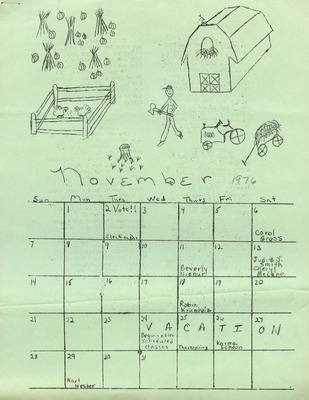 November 1976
Sun Mon Tue Wed Thurs Fri Sat
1 2 Vote!! 3 4 5 6
Election Day
Carol
Gross
7 8 9 10 11 12 13
Beverly
Judi
Smith
Cheryl
14 15 16 17 18 19 20
Robin
21 22 23 24 25 26 27
VACATION
scheduled
classes
Thanksgiving
Karma
28 29 30 31
Kurt
Hester